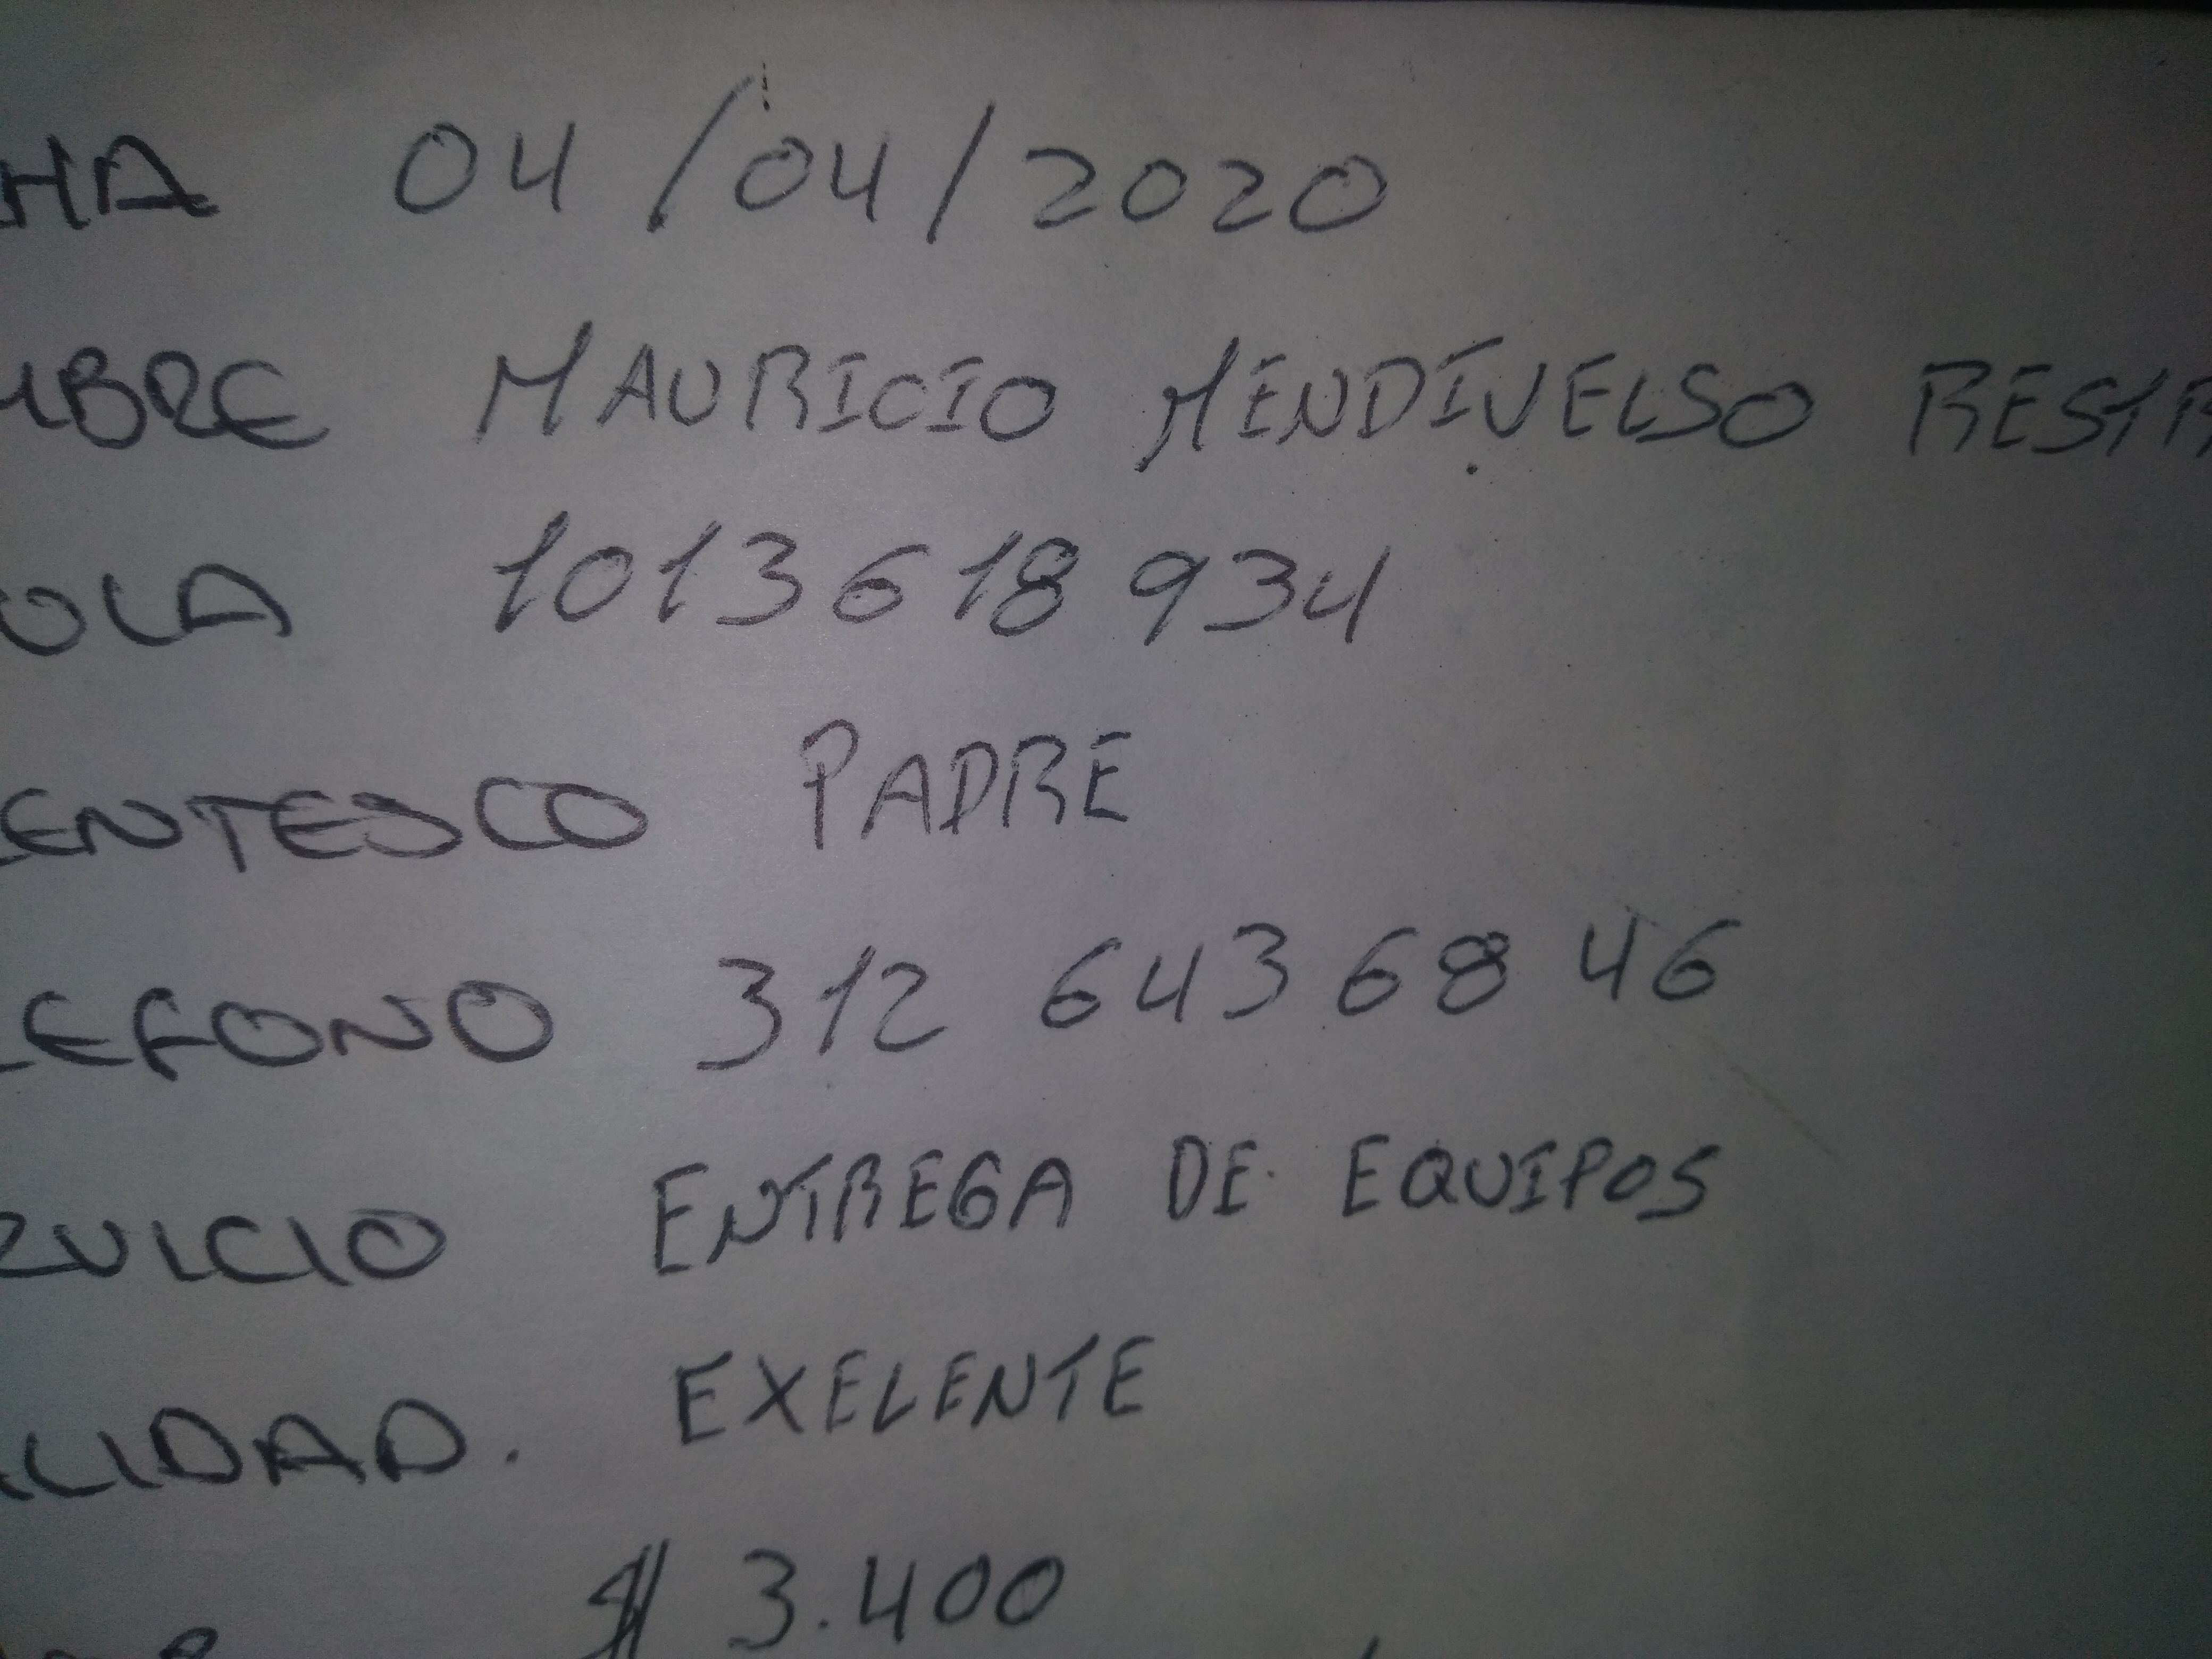 HA 04/04/2020
MBRE MAURICIO MENDIVELSO RESTR
ULA 1013618934
ENTESCO PADRE
LEFONO 312 6436846
RVICIO ENTREGA DE EQUIPOS
ALIDAD. EXELENTE
$ 3.400